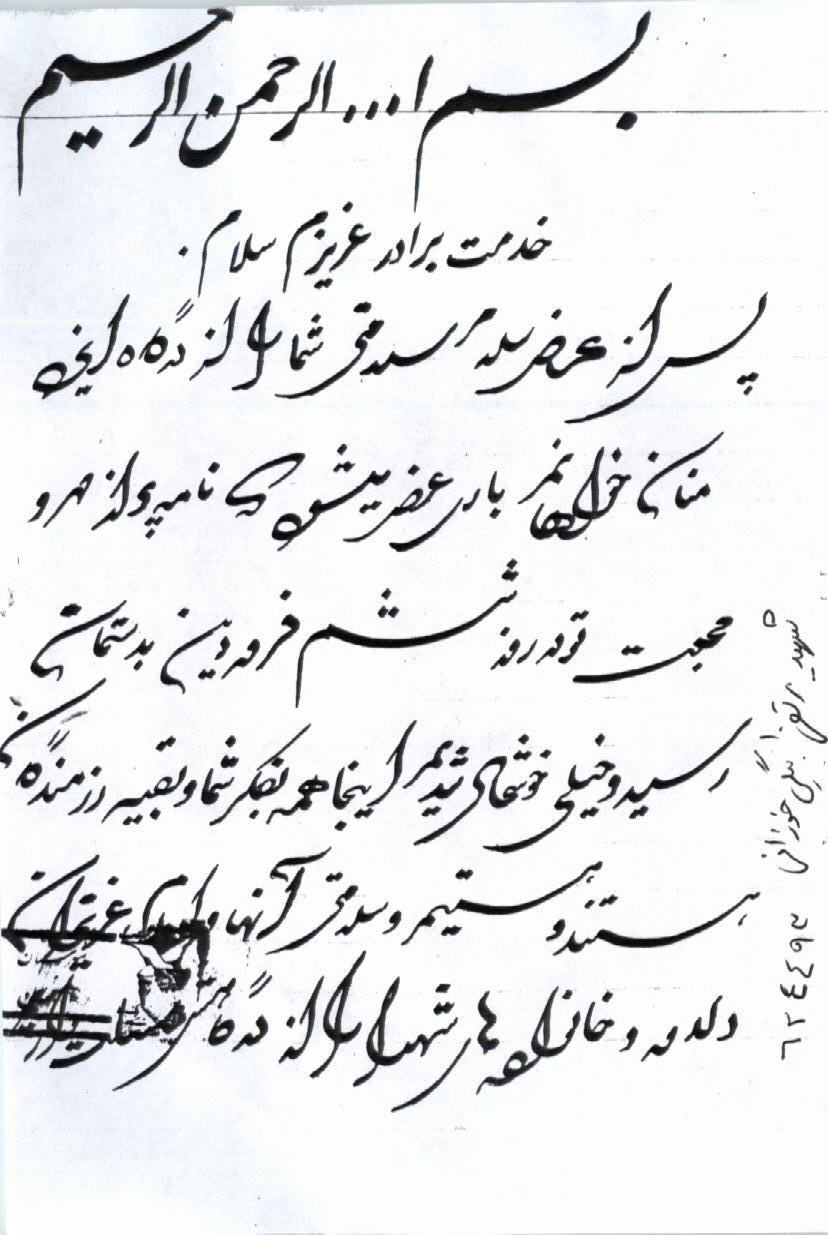 بسم ا... الرحمن الرحیم
خدمت برادر عزیزم سلام.
پس از عرض سلام سلامتی شما را از درگاه ایزد
منان خواهانم باری عرض میشود که نامه پر از مهر و
محبت تو در روز ششم فروردین بدستمان
رسید و خیلی خوشحال شدیم اینجا همه بفکر شما و بقیه رزمندگان
هستند و هستیم و سلامتی آنها و امام عزیزمان
دلاور و خانواده های شهدا را از درگاهش
شهید بیگی خوزانی
۶۲۴۴۹۳